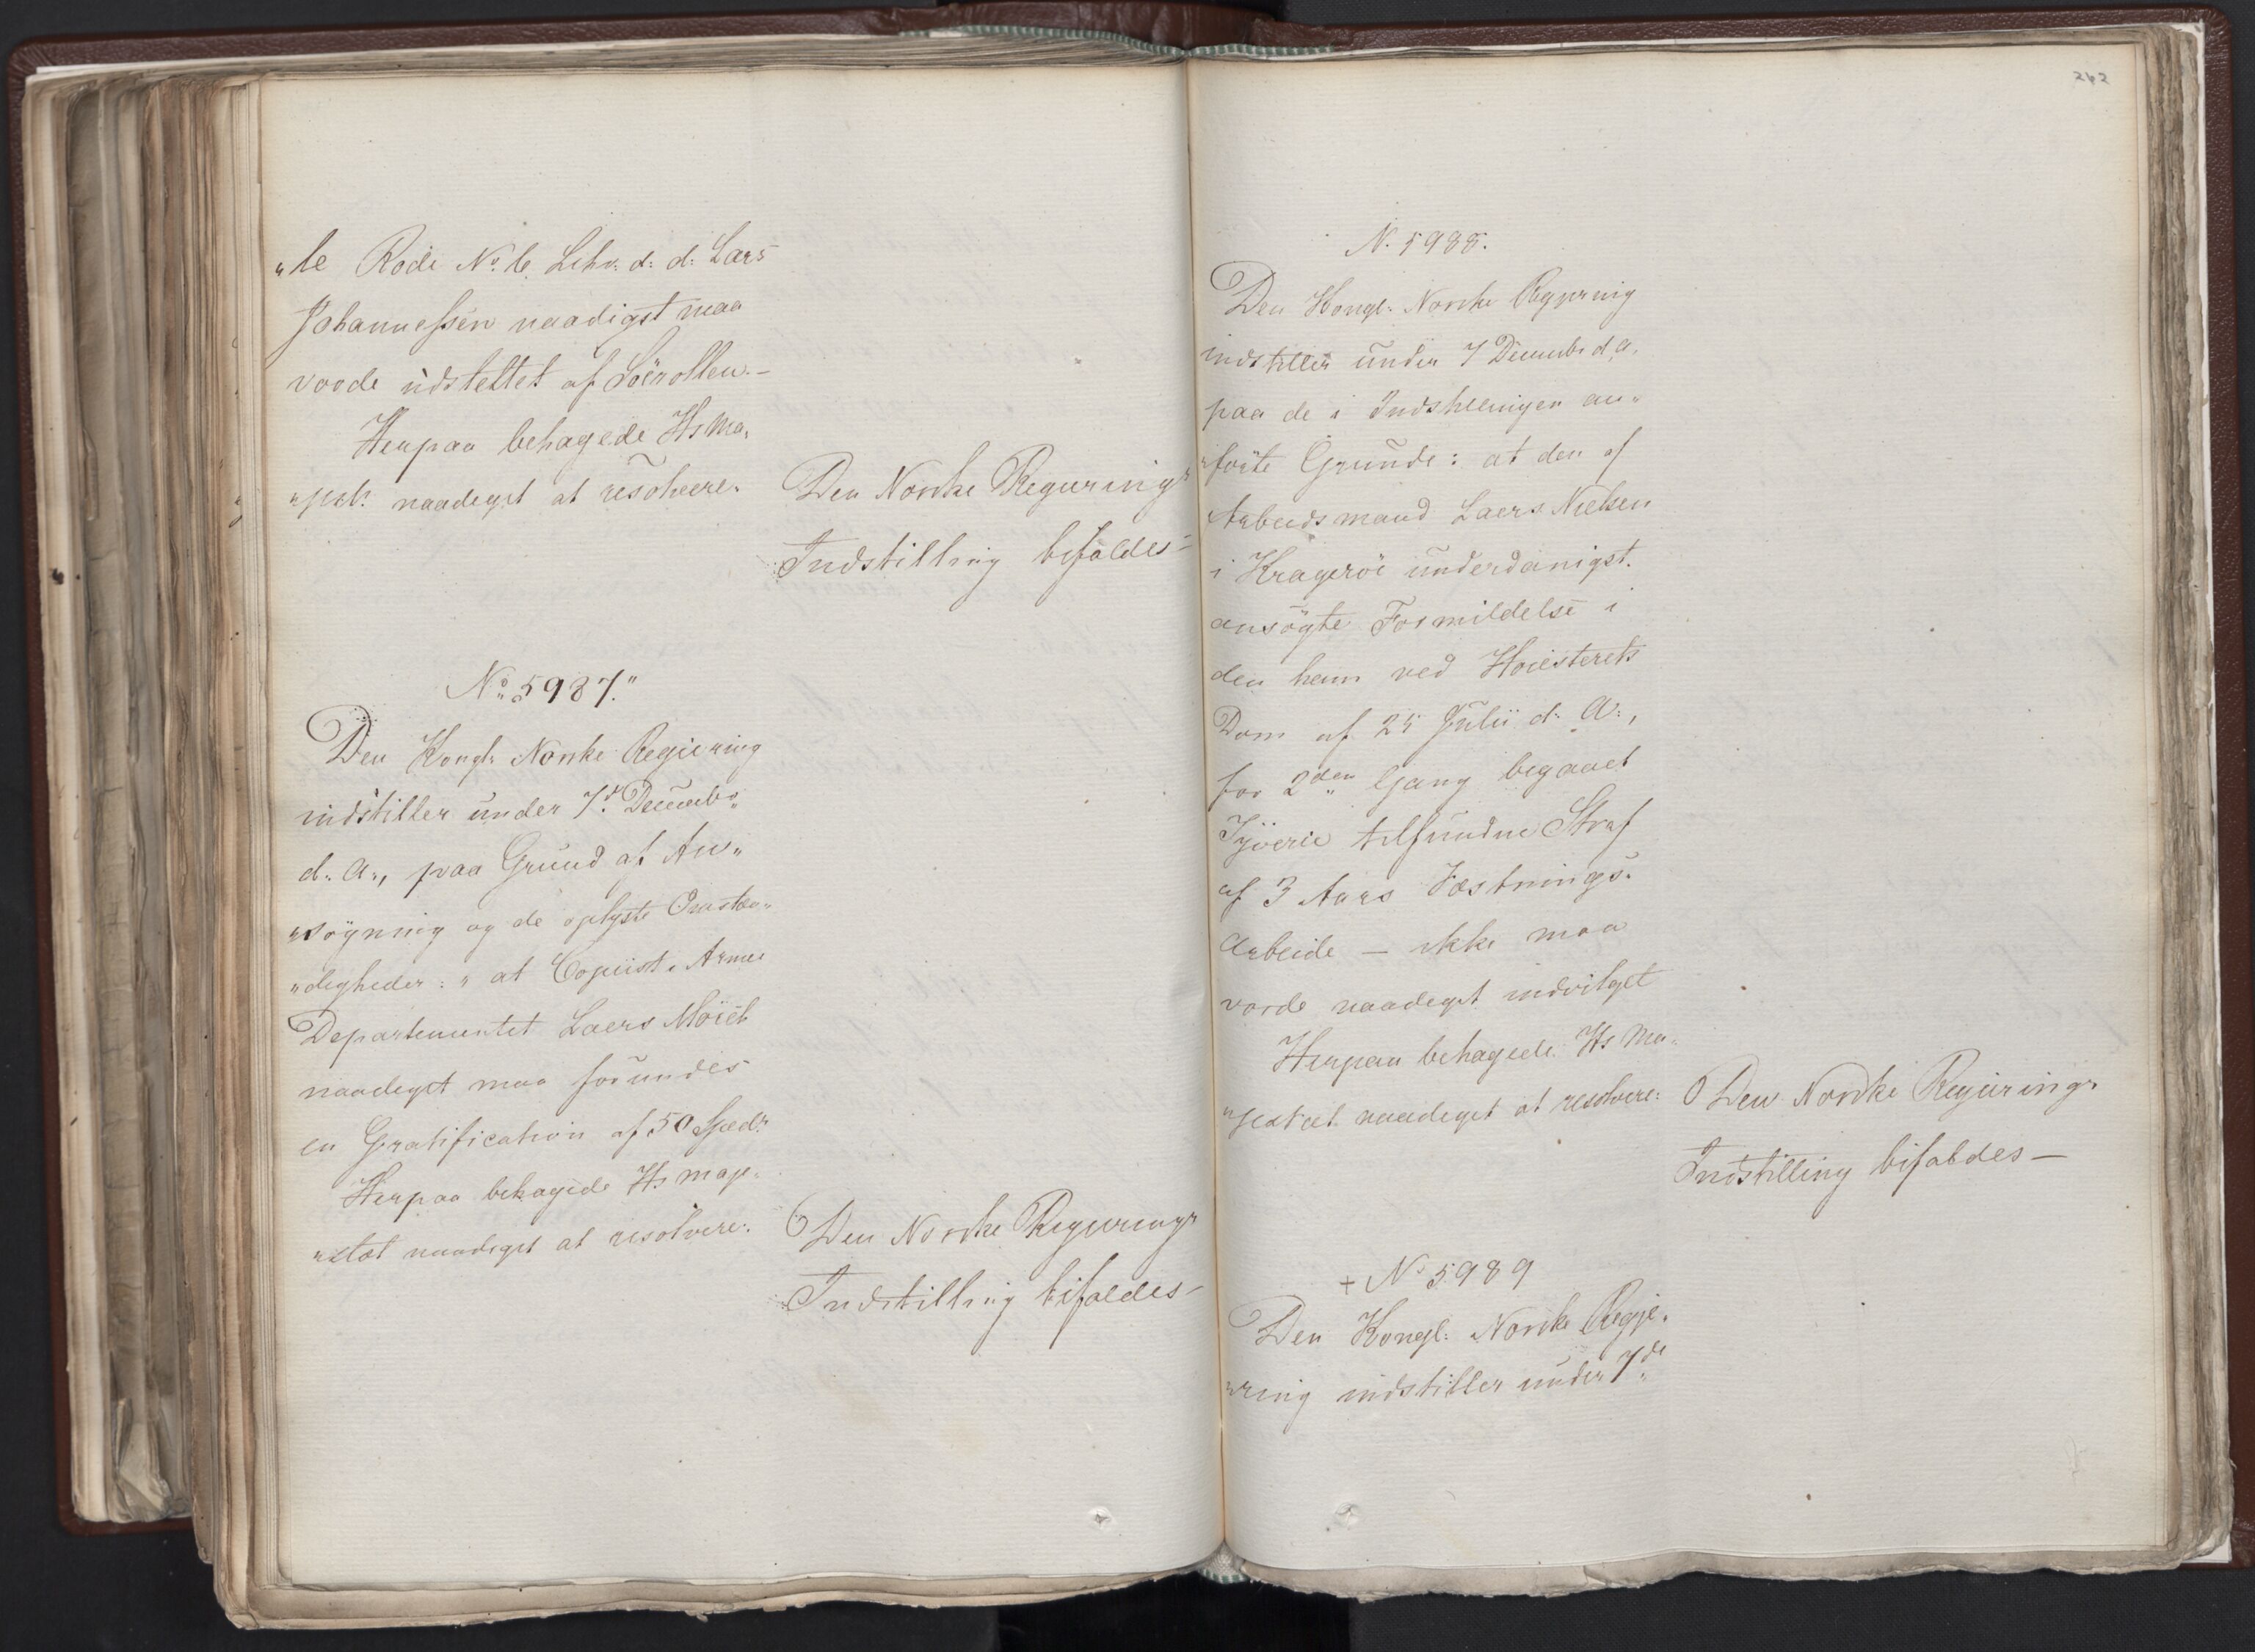 „le Rode No. 6. Litr: d: d: Lars
Johannessen naadigst maa
vorde udslettet af Söerollen.-
Herpaa behagede Hs Ma„
„jest: naadigst at resolvere.
Den Norske Regierings
Indstilling bifaldes-
No. 5987.
Den Kongl: Norske Regiering
indstiller under 7d. Decembr.
d. A., paa Grund af An„
„sögning og de oplyste Omstæn„
„digheder: „ at Copiist i Armee
Departementet Laers
naadigst maa forundes
en Gratification af 50 Spedr.
Herpaa behagede Hs Maje„
„stæt naadigst at resolvere:
Den Norske Regierings
Indstilling bifaldes-
262
N. 5988.
Den Kongl: Norske Regjering
indstiller under 7 Decembr d. A.
paa de i Indstillingen an„
„förte Grunde: at den af
Arbeidsmand Laers Nielsen
i Krageröe underdanigst
ansögte Formildelse i
den ham ved Höiesterets
Dom af 25 Julii d. A:,
for 2den Gang begaaet
Tyverie tilfundne Straf
af 3 Aars Fæstnings-
Arbeide — ikke maa
vorde naadigst indvilget
Herpaa behagede Hs Ma„
„jestæt naadigst at resolvere:
Den Norske Regierings
Indstilling bifaldes —
+ No 5989
Den Kongl: Norske Regje„
„ring indstiller under 7de